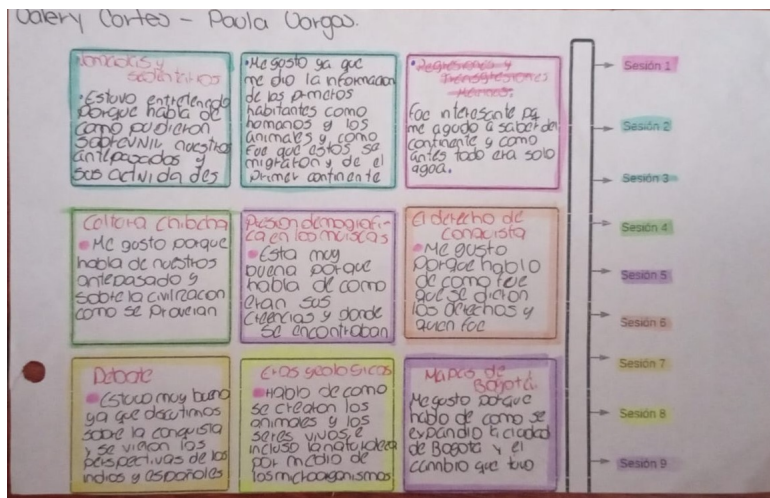 Valery Cortes - Paola Vargas.
Nomadas y
sedentarios
•Estuvo entretenido
porque habla de
como pudieron
sobrevivir nuestros
antepasados y
sus actividades
•Me gusto ya que
me dio la informacion
de los primeros
habitantes como
humanos y los
animales y como
fue que estos se
migraron y de el
primer continente
•Regresiones y
Transgresiones
Marinas.
Fue interesante pq
me ayudo a saber del
continente y como
antes todo era solo
agua.
Cultura chibcha
Me gusto porque
habla de nuestros
antepasado y
sobre la civilizacion
como se proveian
Presion demografi-
ca en los muiscas
Esta muy
buena porque
habla de como
eran sus
creencias y donde
se encontraban
El derecho de
conquista
Me gusto
porque hablo
de como fue
que se dieron
los derechos y
quien fue
Debate
Estuvo muy bueno
ya que discutimos
sobre la conquista
y se vieron las
perspectivas de los
indios y españoles
Eras geologicas
Hablo de como
se crearon los
animales y los
seres vivos, e
incluso la naturaleza
por medio de
los microorganismos
Mapas de
Bogotá.
Me gusto porque
hablo de como se
expandio la ciudad
de Bogota y el
cambio que tuvo
Sesión 1
Sesión 2
Sesión 3
Sesión 4
Sesión 5
Sesión 6
Sesión 7
Sesión 8
Sesión 9